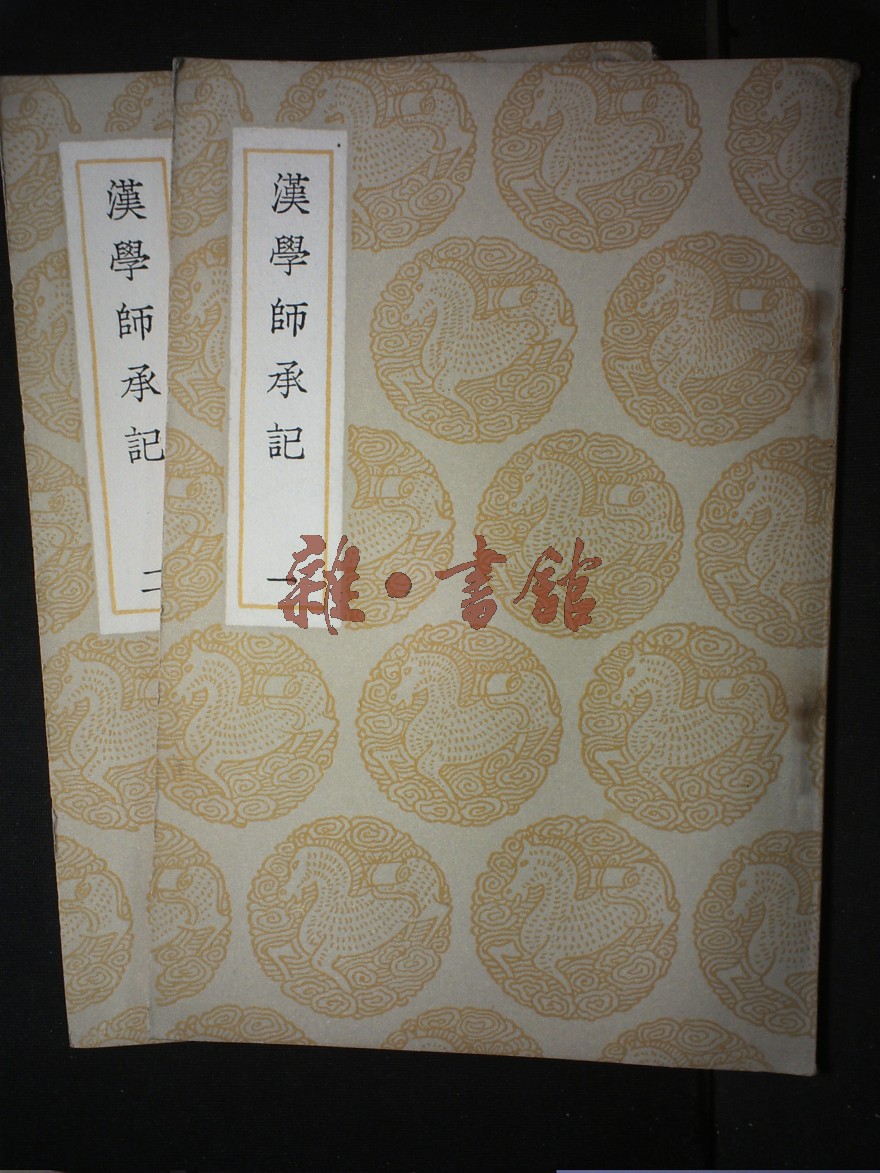 漢學師承記
一
漢學師承記
二
雜·書館